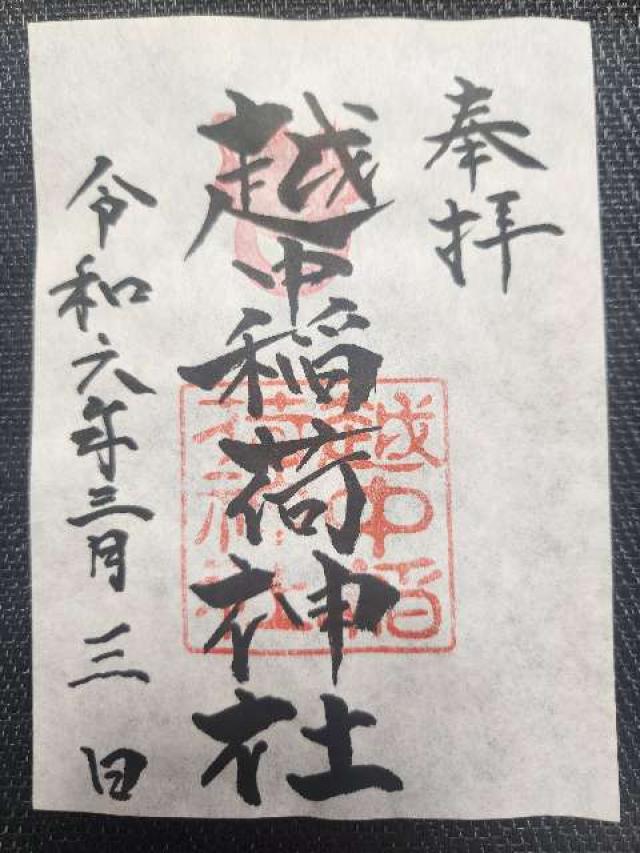 奉拝
越中稲荷神社
令和六年三月三日
越中稲
荷神社